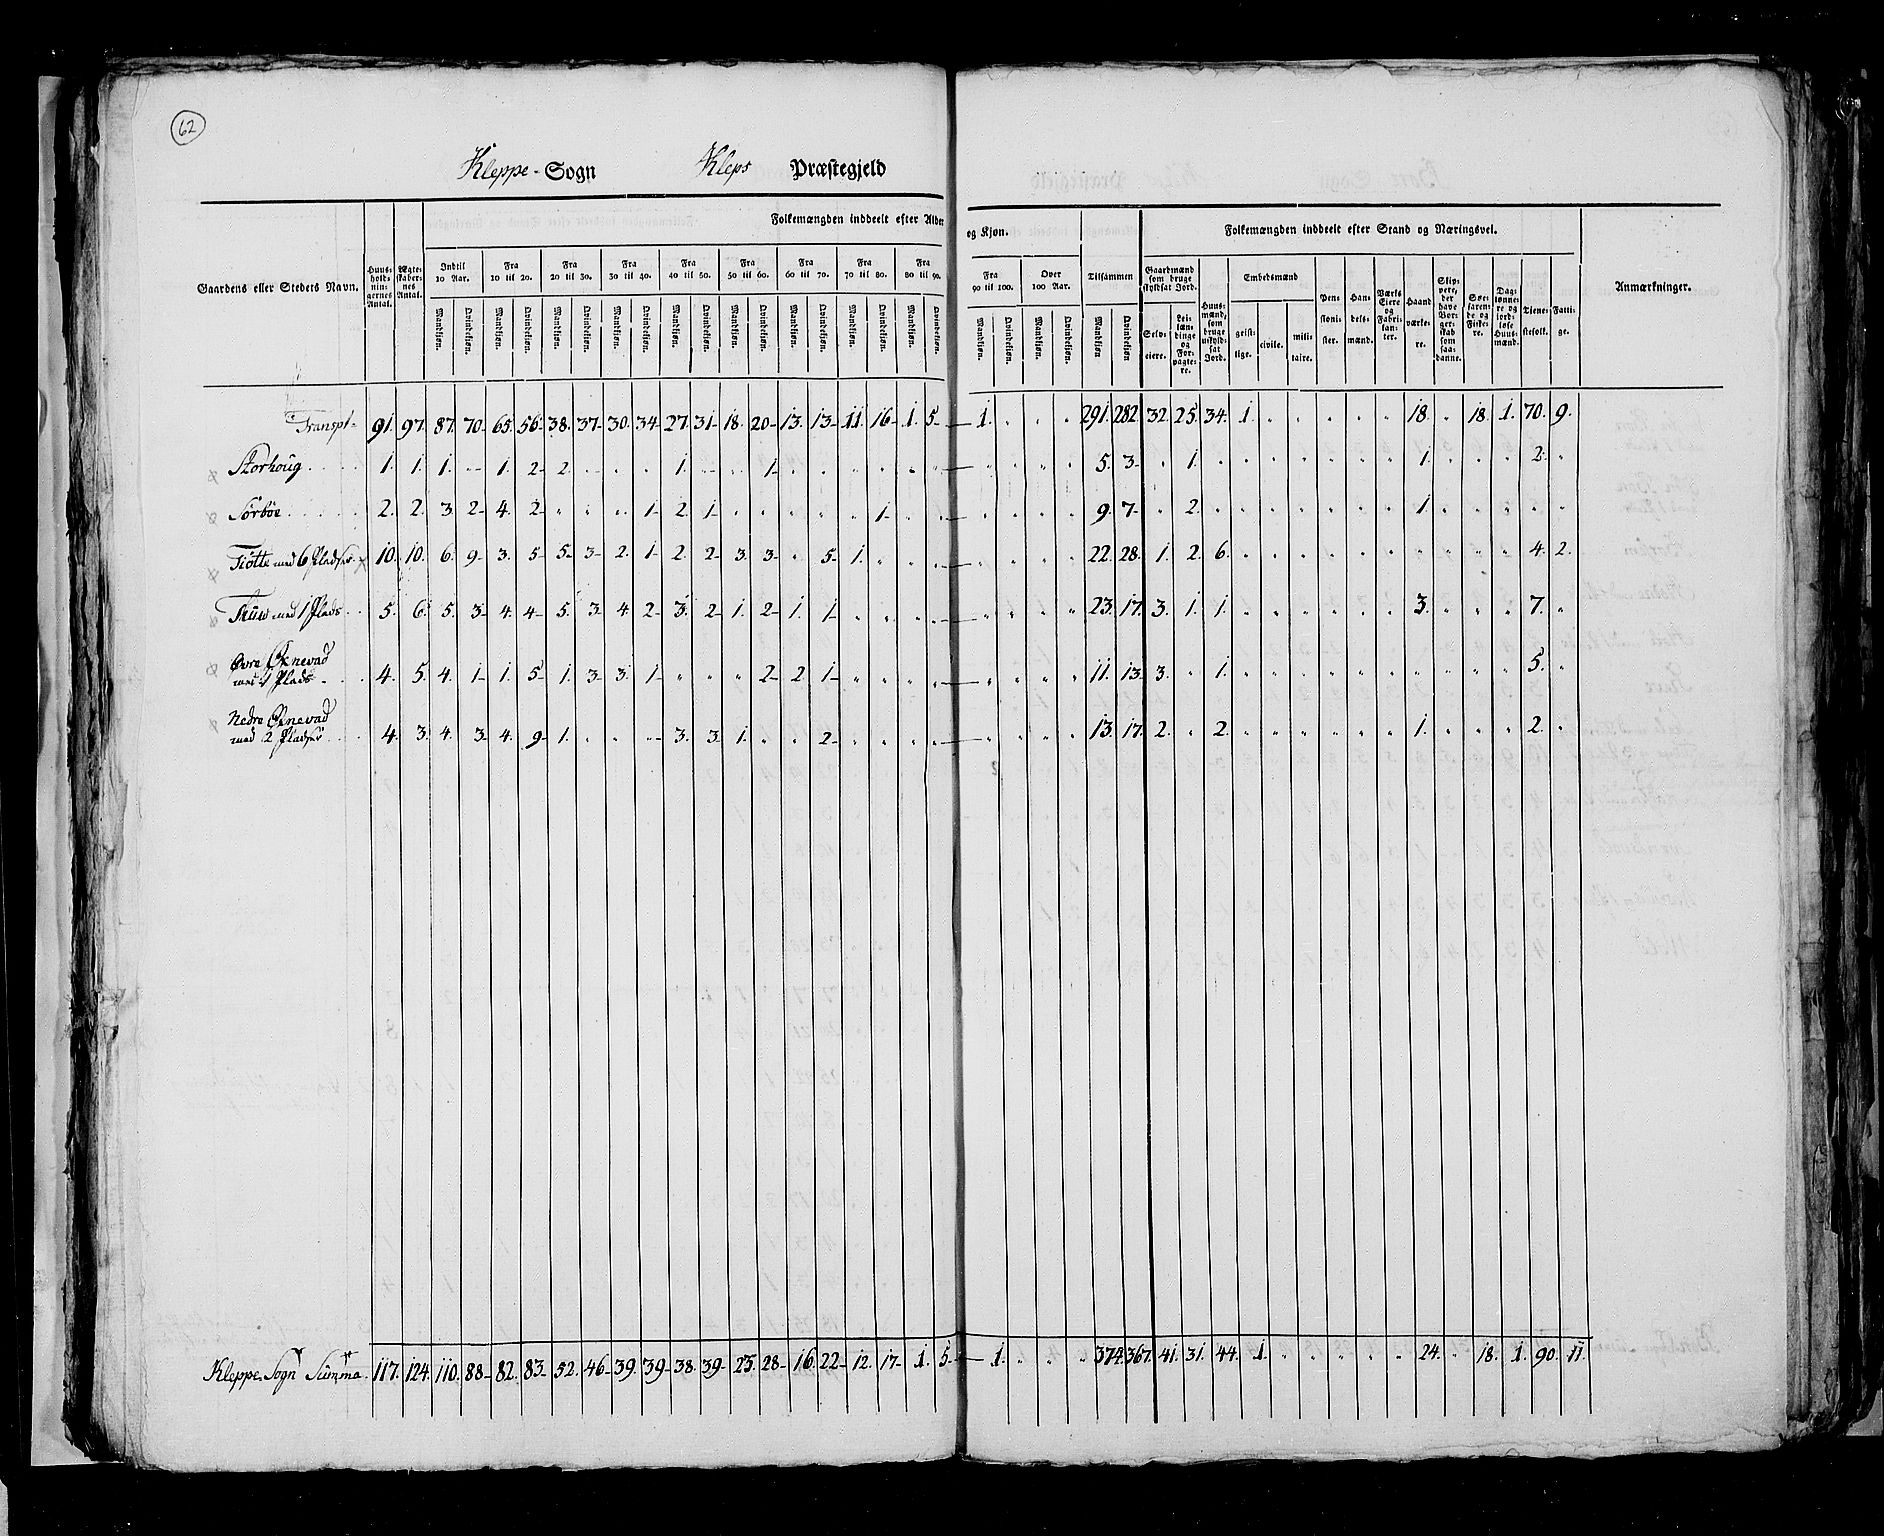 62
Kleppe-Sogn Kleps Præstegjeld
Folkemængden inddeelt efter Alder og Kjøn. Folkemængden inddeelt efter Stand og Næringsvei.
Gaardens eller Stedets Navn. Huus-hold-nin-gernes Antal. Ægte-skaber-nes Antal. Indtil 10 Aar. Fra 10 til 20. Fra 20 til 30. Fra 30 til 40. Fra 40 til 50. Fra 50 til 60. Fra 60 til 70. Fra 70 til 80. Fra 80 til 90. Fra 90 til 100. Over 100 Aar. Tilsammen Gaardmænd som bruge skyldsat Jord. Huus-mænd, som bruge uskyld-sat Jord. Embedsmænd Pen-sioni-ster. Han-dels-mænd. Værks Eiere og Fabri-kan-ter. Haand-værke-re. Skip-pere, der have Bor-ger-skab som saa-danne. Søe-faren-de og Fiske-re. Dag-lønne-re og jord-løse Huus-mænd. Tiene-stefolk. Fatti-ge. Anmærkninger.
Mandkjøn. Qvindekjøn. Mandkjøn. Qvindekjøn. Mandkjøn. Qvindekjøn. Mandkjøn. Qvindekjøn. Mandkjøn. Qvindekjøn. Mandkjøn. Qvindekjøn. Mandkjøn. Qvindekjøn. Mandkjøn. Qvindekjøn. Mandkjøn. Qvindekjøn. Mandkjøn. Qvindekjøn. Mandkjøn. Qvindekjøn. Mandkjøn Qvindekjøn Selv-eiere. Lei-læn-dinge og For-pagte-re. geist-lige. civile. mili-taire.
Transpt- 91. 97. 87. 70- 65. 56- 38. 37- 30. 34- 27. 31- 18. 20- 13. 13- 11. 16- 1. 5- 1. " " " 291. 282. 32. 25. 34. 1. " " " " " 18. " 18. 1. 70. 9.
Storhoug 1. 1. 1. " 1. 2- 2. " " " 1. " " 1- " " " " " " " " " " 5. 3- " 1. " " " " " " " 1. " " " 2. "
Sörböe 2. 2. 3. 2- 4. 2- " " " 1- 2. 1- " " " " " 1- " " " " " " 9. 7- " 2. " " " " " " " 1. " " " " "
Tiötte med 6 Pladser 10. 10. 6. 9- 3. 5- 5. 3- 2. 1- 2. 2- 3. 3- " 5- 1. " " " " " " " 22. 28. 1. 2. 6. " " " " " " " " " " 4. 2.
Thuw med 1 Plads 5. 6. 5. 3- 4. 4- 5. 3- 4. 2- 3. 2- 1. 2- 1. 1- " " " " " " " " 23. 17. 3. 1. 1. " " " " " " 3. " " " 7. "
Øvre Øxnevad
med 1 Plads 4. 5. 4. 1- 1. 5- 1. 3- 3. 1- " " " 2- 2. 1- " " " " " " " " 11. 13. 3. " 1. " " " " " " " " " " 5. "
Nedre Øxnevad
med 2 Pladser 4. 3. 4. 3- 4. 9- 1. " " " 3. 3- 1. " " 2- " " " " " " " " 13. 17. 2. " 2. " " " " " " 1. " " " 2. "
Kleppe Sogn Summa. 117. 124. 110. 88- 82. 83- 52. 46- 39. 39- 38. 39- 23. 28- 16. 22- 12. 17- 1. 5- 1. " " " 374. 367. 41. 31. 44. 1. " " " " " 24. " 18. 1. 90. 11.